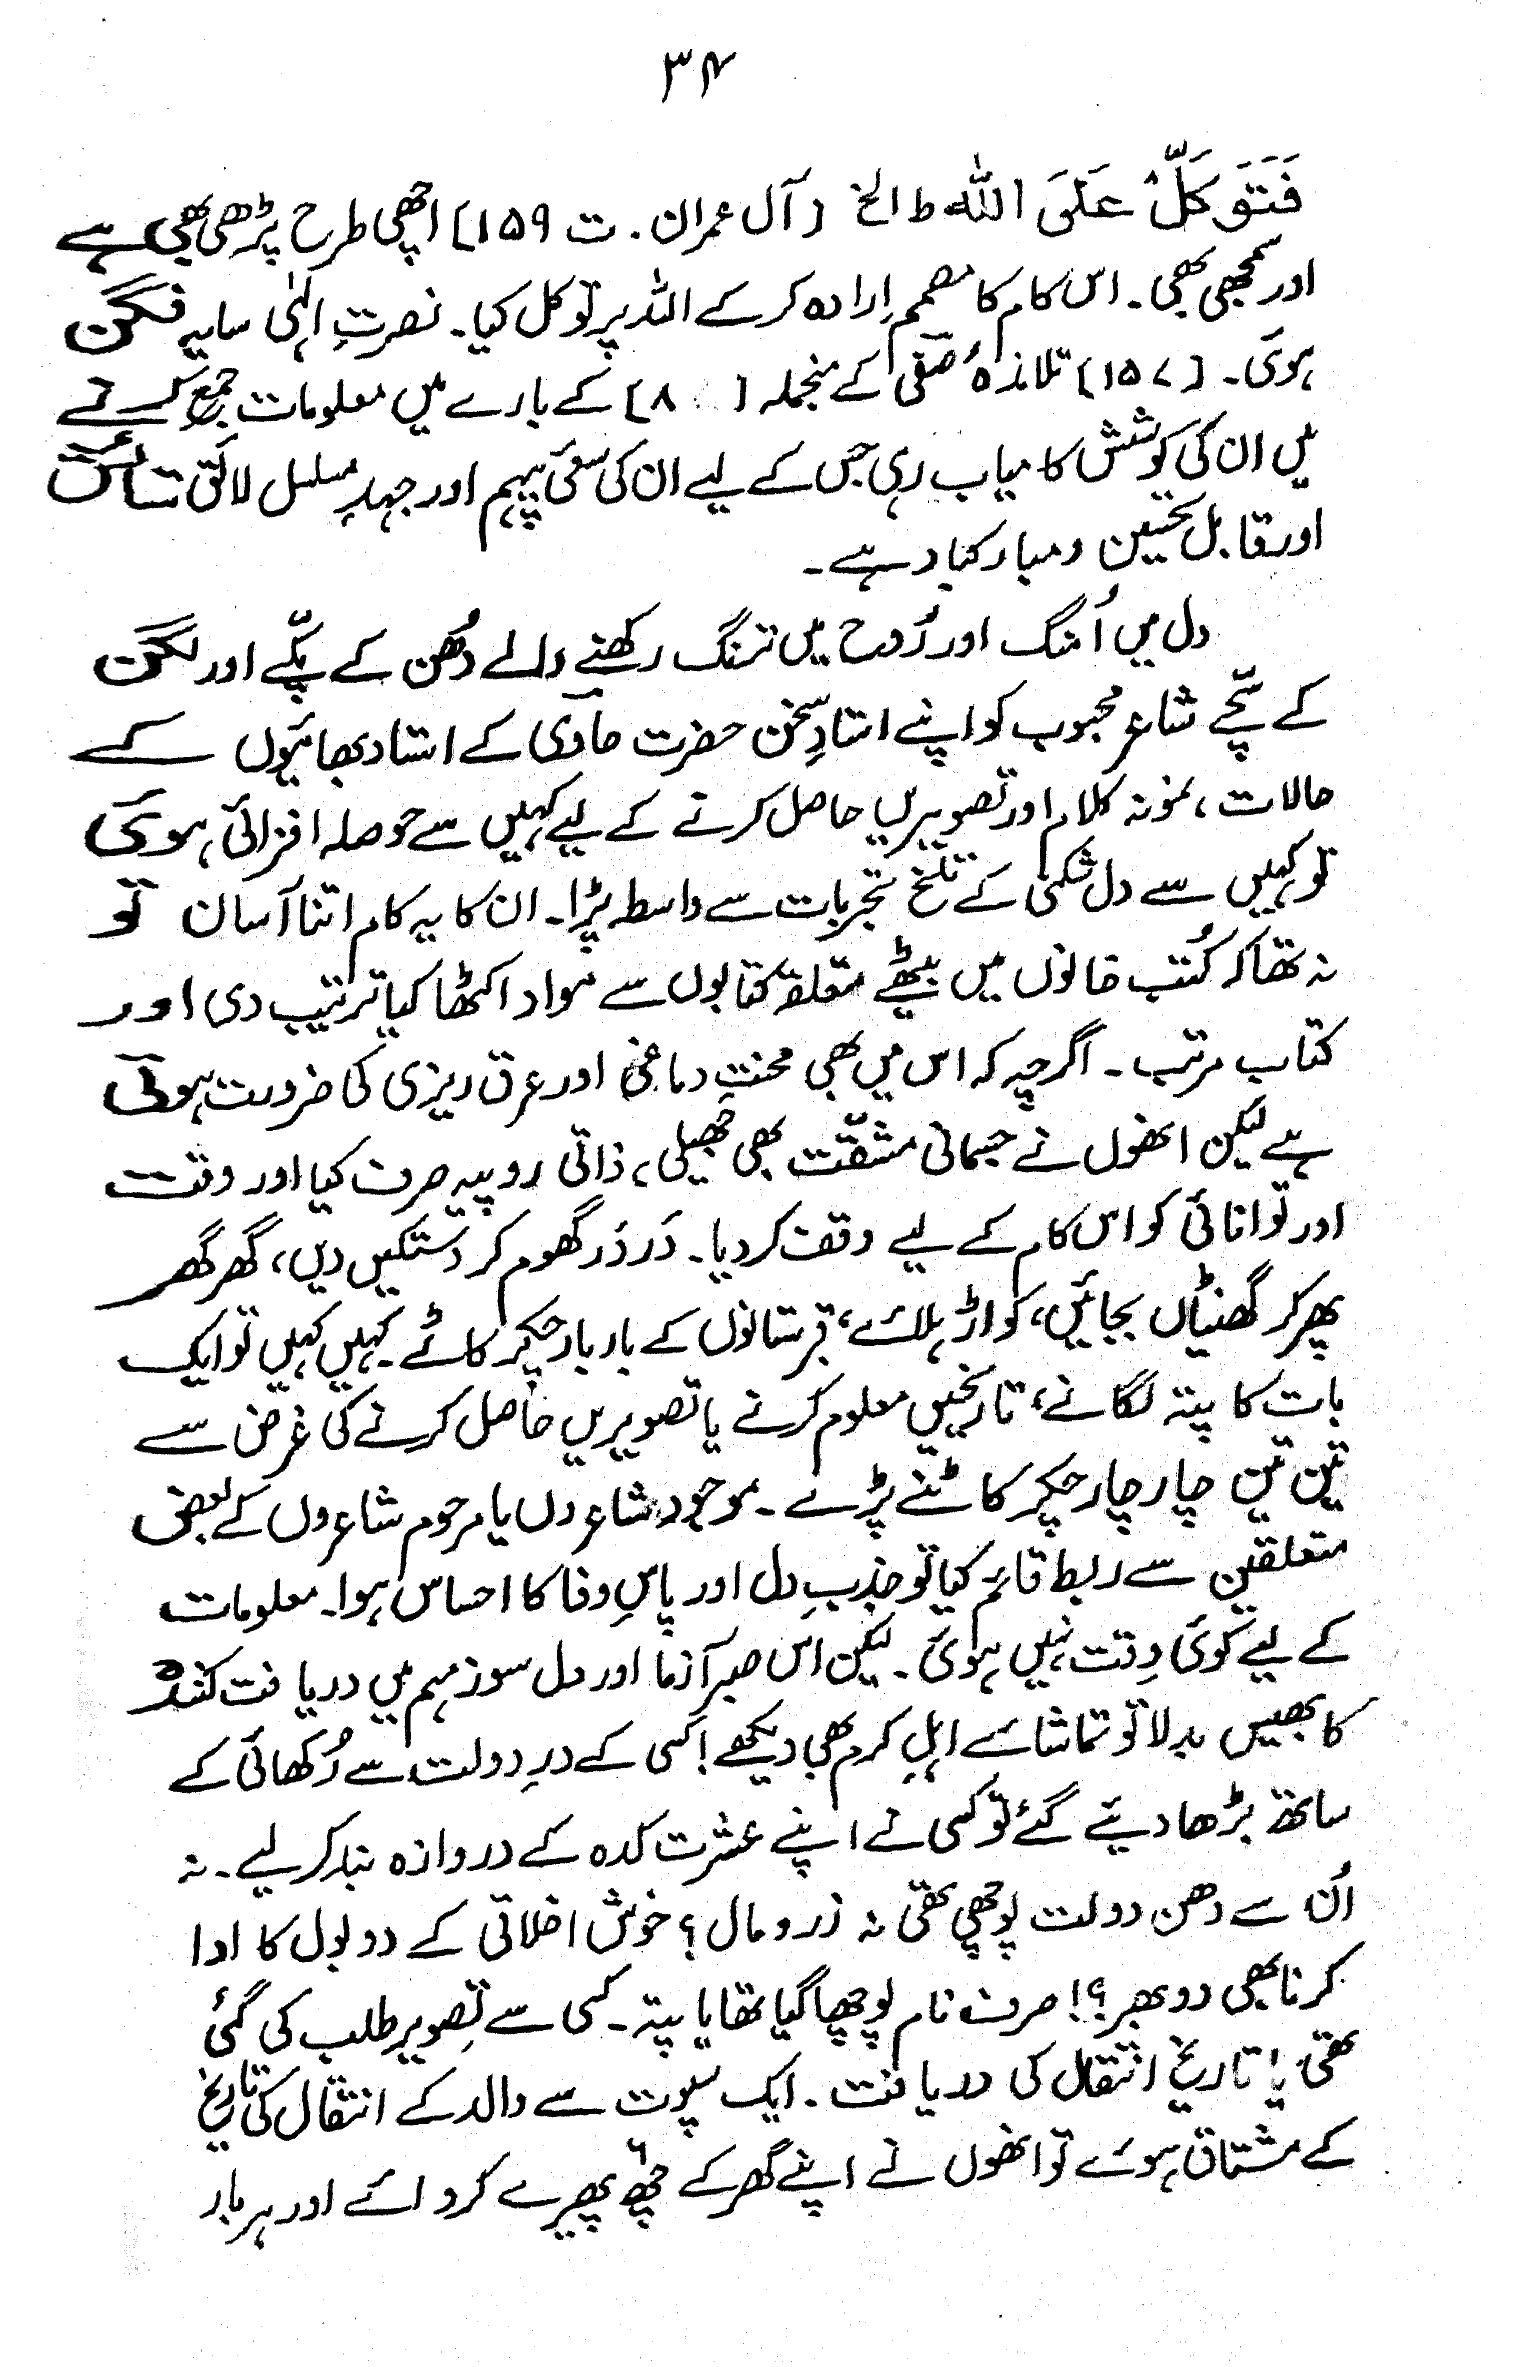 ۳۴
فَتَوَکَّلْ عَلَی اللہ ط الخ (آل عمران . ت ۱۵۹) اچھی طرح پڑھی بھی ہے
اور سمجھی بھی۔ اس کام کا مصمم اِرادہ کر کے اللہ پر توکل کیا۔ نصرتِ الٰہی سایہ فگن
ہوئی۔ [۱۵۷] تلامذہٗ صفی کے منجملہ [۸۰] کے بارے میں معلومات جمع کرنے
میں ان کی کوشش کامیاب رہی جس کے لیے ان کی سعئ پیہم اور جہدِ مسلسل لائق ستائش
اور قابل تحسین و مبارکباد ہے۔
دل میں اُمنگ اور رُوح میں ترنگ رکھنے والے دُھن کے پکّے اور لگن
کے سچّے شاعر محبوب کو اپنے استادِ سخن حضرت حاوی کے استاد بھائیوں کے
حالات، نمونہ کلام اور تصویریں حاصل کرنے کے لیے کہیں سے حوصلہ افزائی ہوئی
تو کہیں سے دل شکنی کے تلخ تجربات سے واسطہ پڑا۔ ان کا یہ کام اتنا آسان تو
نہ تھا کہ کُتب خانوں میں بیٹھے متعلقہ کتابوں سے مواد اکٹھا کیا ترتیب دی اور
کتاب مرتب۔ اگرچہ کہ اس میں بھی محنتِ دماغی اور عرق ریزی کی ضرورت ہوتی
ہے لیکن انھوں نے جسمانی مشقّت بھی جھیلی، ذاتی روپیہ صرف کیا اور وقت
اور توانائی کو اس کام کے لیے وقف کر دیا۔ دَر دَر گھوم کر دستکیں دیں، گھر گھر
پھر کر گھنٹیاں بجائیں، کواڑ ہلائے، قبرستانوں کے بار بار چکر کاٹے۔ کہیں کہیں تو ایک
بات کا پتہ لگانے، تاریخیں معلوم کرنے یا تصویریں حاصل کرنے کی غرض سے
تین تین چار چار چکر کاٹنے پڑے۔ موجود شاعروں یا مرحوم شاعروں کے بعض
متعلقین سے ربط قائم کیا تو جذبِ دل اور پاسِ وفا کا احساس ہوا۔ معلومات
کے لیے کوئی دِقت نہیں ہوئی۔ لیکن اس صبر آزما اور دل سوز مہم میں دریافت کنندہ
کا بھیس بدلا تو تماشائے اہلِ کرم بھی دیکھے! کسی کے درِ دولت سے رُکھائی کے
ساتھ بڑھا دیئے گئے تو کسی نے اپنے عشرت کدہ کے دروازہ بند کر لیے۔ نہ
اُن سے دھن دولت پوچھی تھی نہ زر و مال؟ خوش اخلاقی کے دو بول کا ادا
کرنا بھی دوبھر؟! صرف نام پوچھا گیا تھا یا پتہ۔ کسی سے تصویر طلب کی گئی
تھی یا تاریخ انتقال کی دریافت۔ ایک سپوت سے والد کے انتقال کی تاریخ
کے مشتاق ہوئے تو انھوں نے اپنے گھر کے چھ ۶ پھیرے کروائے اور ہر بار